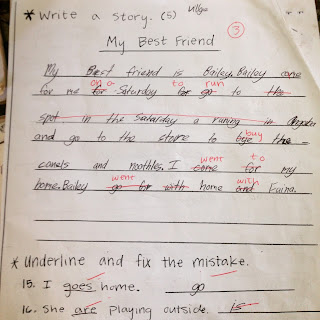 * Write a story. (5) Ullga
3
My Best Friend
My Best friend is Bailey. Bailey come
on a to run
for me for Saturday for go to the
spot in the Satalday a runing in
and go to the store to bye buy the
canels and noothles. I come went for to my
went with
home. Bailey go for with home and Kaina.
* Underline and fix the mistake.
15. I goes home. go
16. She are playing outside. is